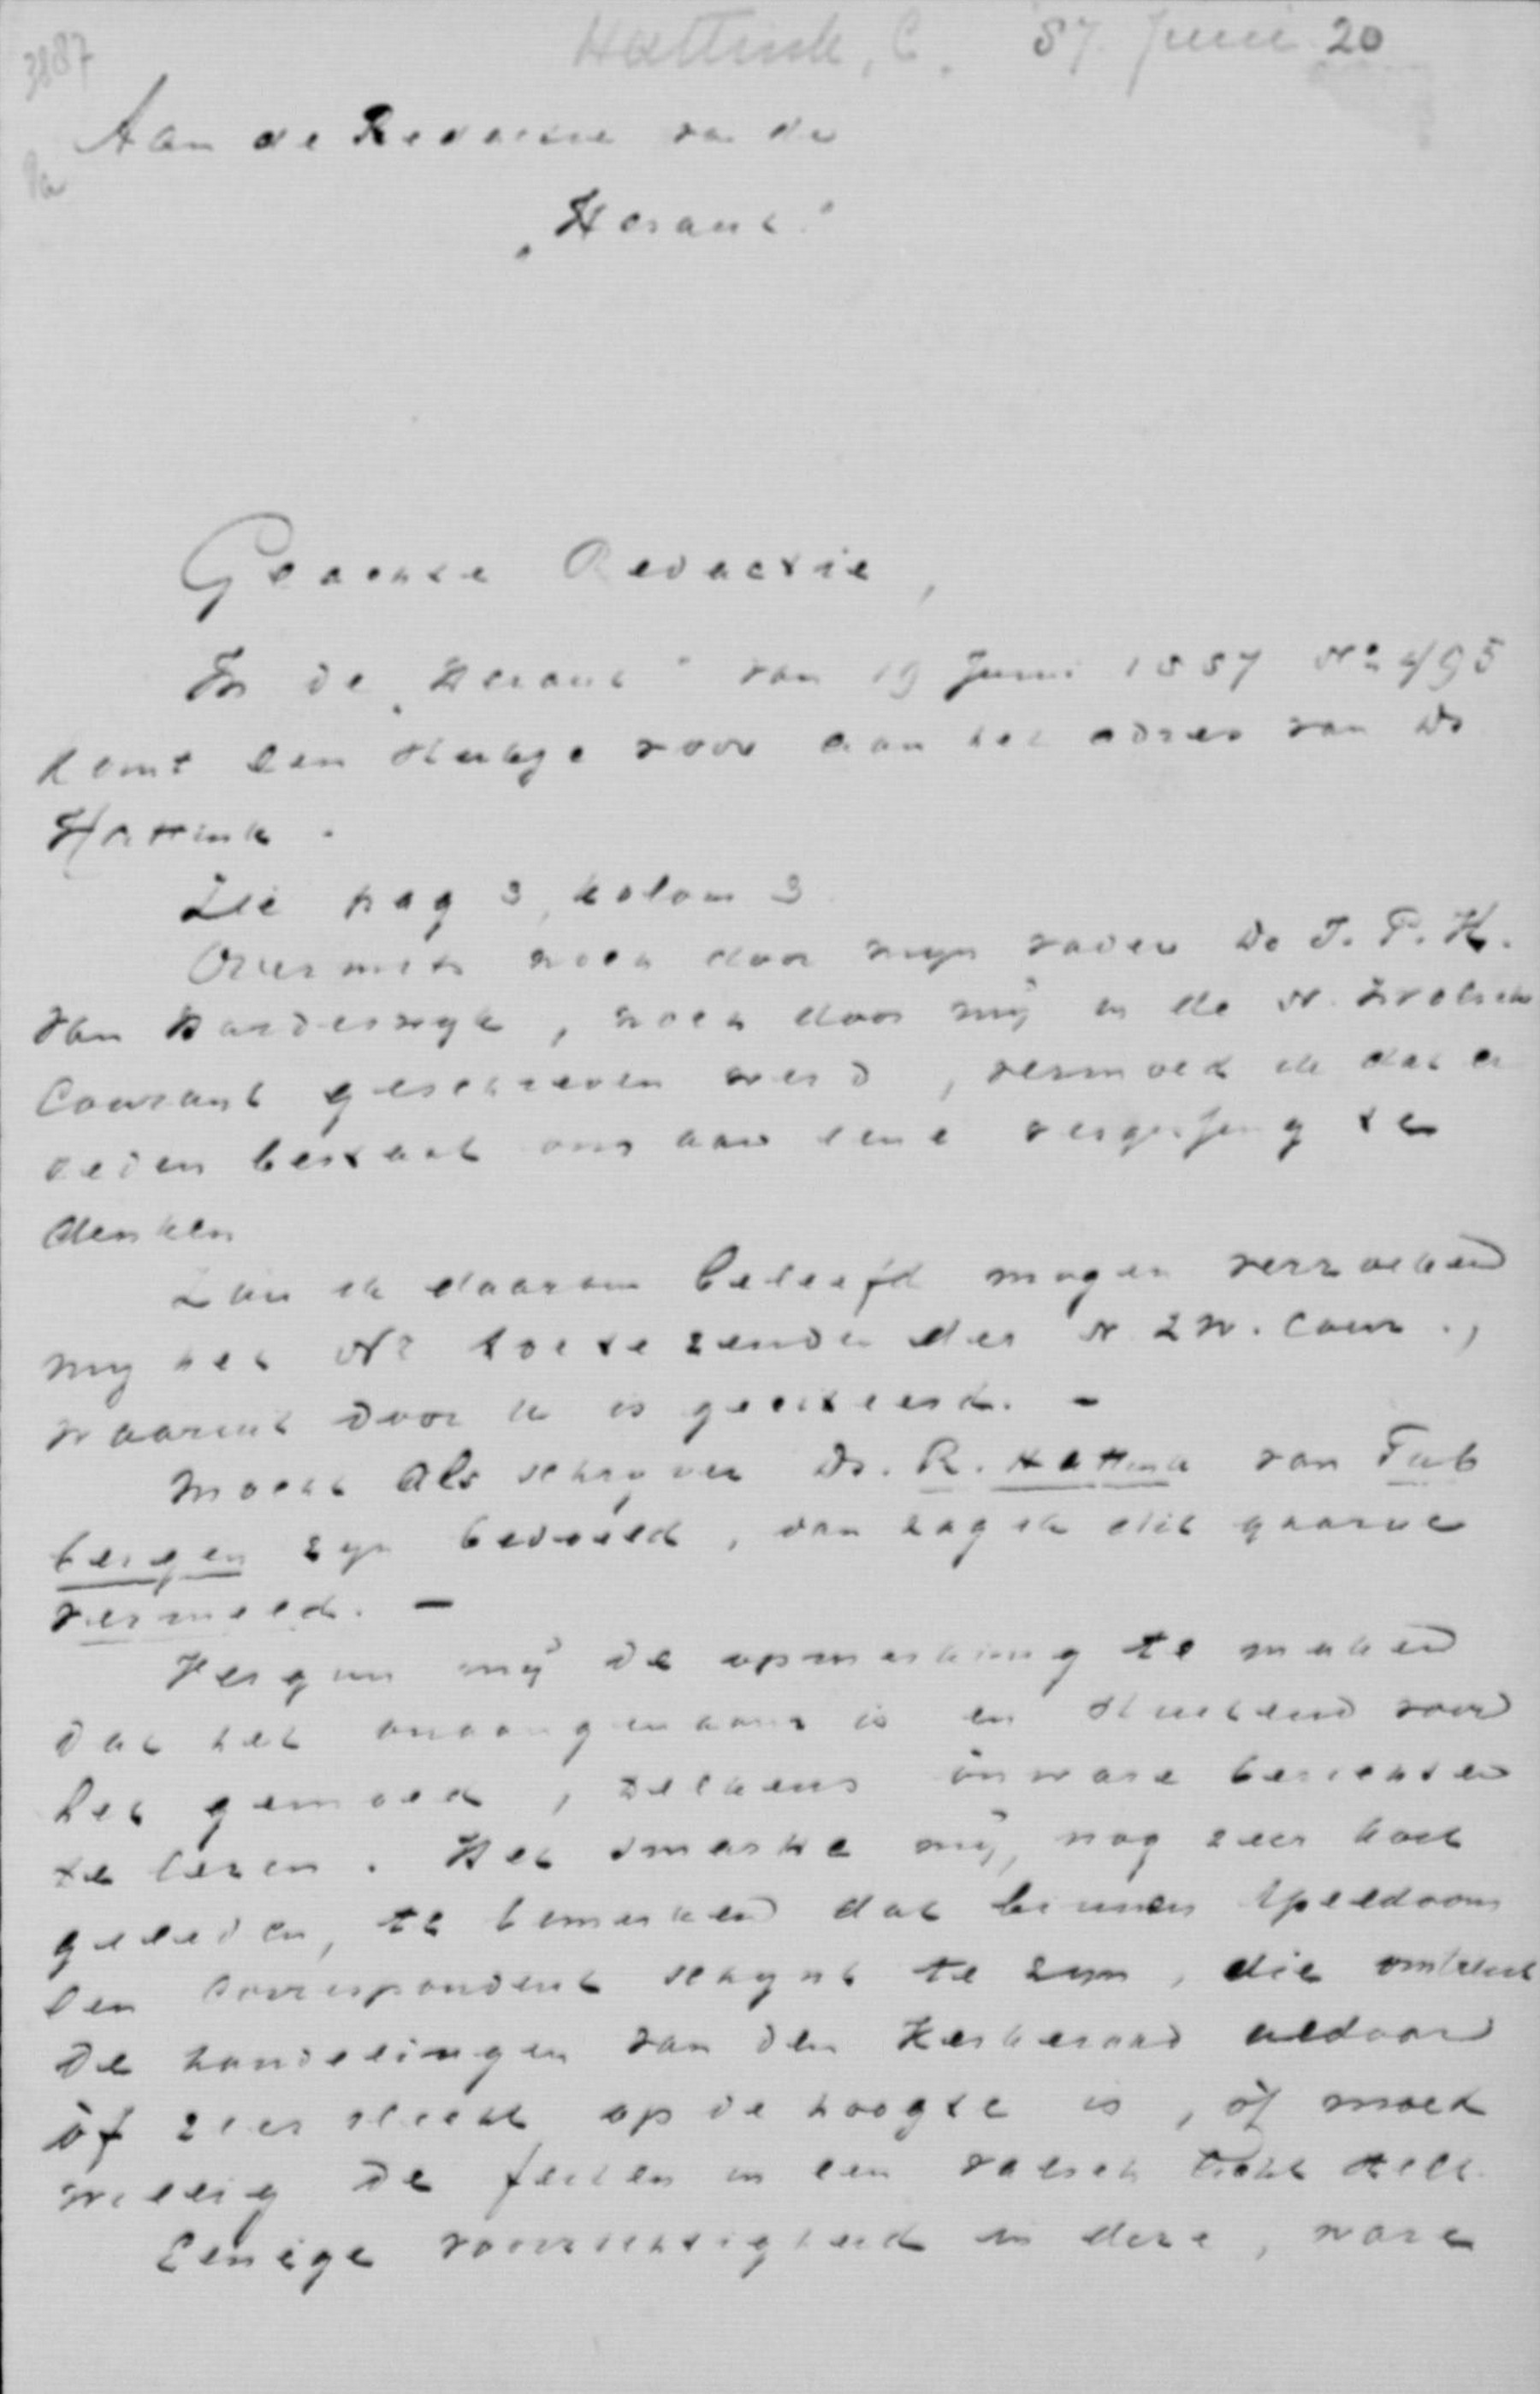 Hattink, C. 87 Juni 20
3887
Aan de Redactie van de
„Heraut."
Geachte Redactie,
In de „Heraut" van 19 Juni 1887 No 495
komt een stukje voor aan het adres van Ds
Hattink.
Zie pag 3, kolom 3.
Overmits noch door mijn vader Ds J. P. H.
van Harderwijk, noch door mij in de N. Zwolsche
Courant geschreven werd, vermoed ik dat er
reden bestaat om aan eene vergissing te
denken
Zou ik daarom beleefd mogen verzoeken
mij het No toe te zenden der N. Zw. Cour.,
waaruit door U is geciteerd. -
Mocht als schrijver Ds. R. Hattink van Tub
bergen zijn bedoeld, dan zag ik dit gaarne
vermeld. -
Vergun mij de opmerking te maken
dat het onaangenaam is en stuitend voor
het gemoed, telkens onware berichten
te lezen. Het smartte mij, nog zeer kort
geleden, te bemerken dat binnen Apeldoorn
een correspondent schijnt te zijn, die omtrent
de handelingen van den Kerkeraad aldaar
òf zeer slecht op de hoogte is, òf moed
willig de feiten in een valsch licht stelt.
Eenige voorzichtigheid in deze, ware